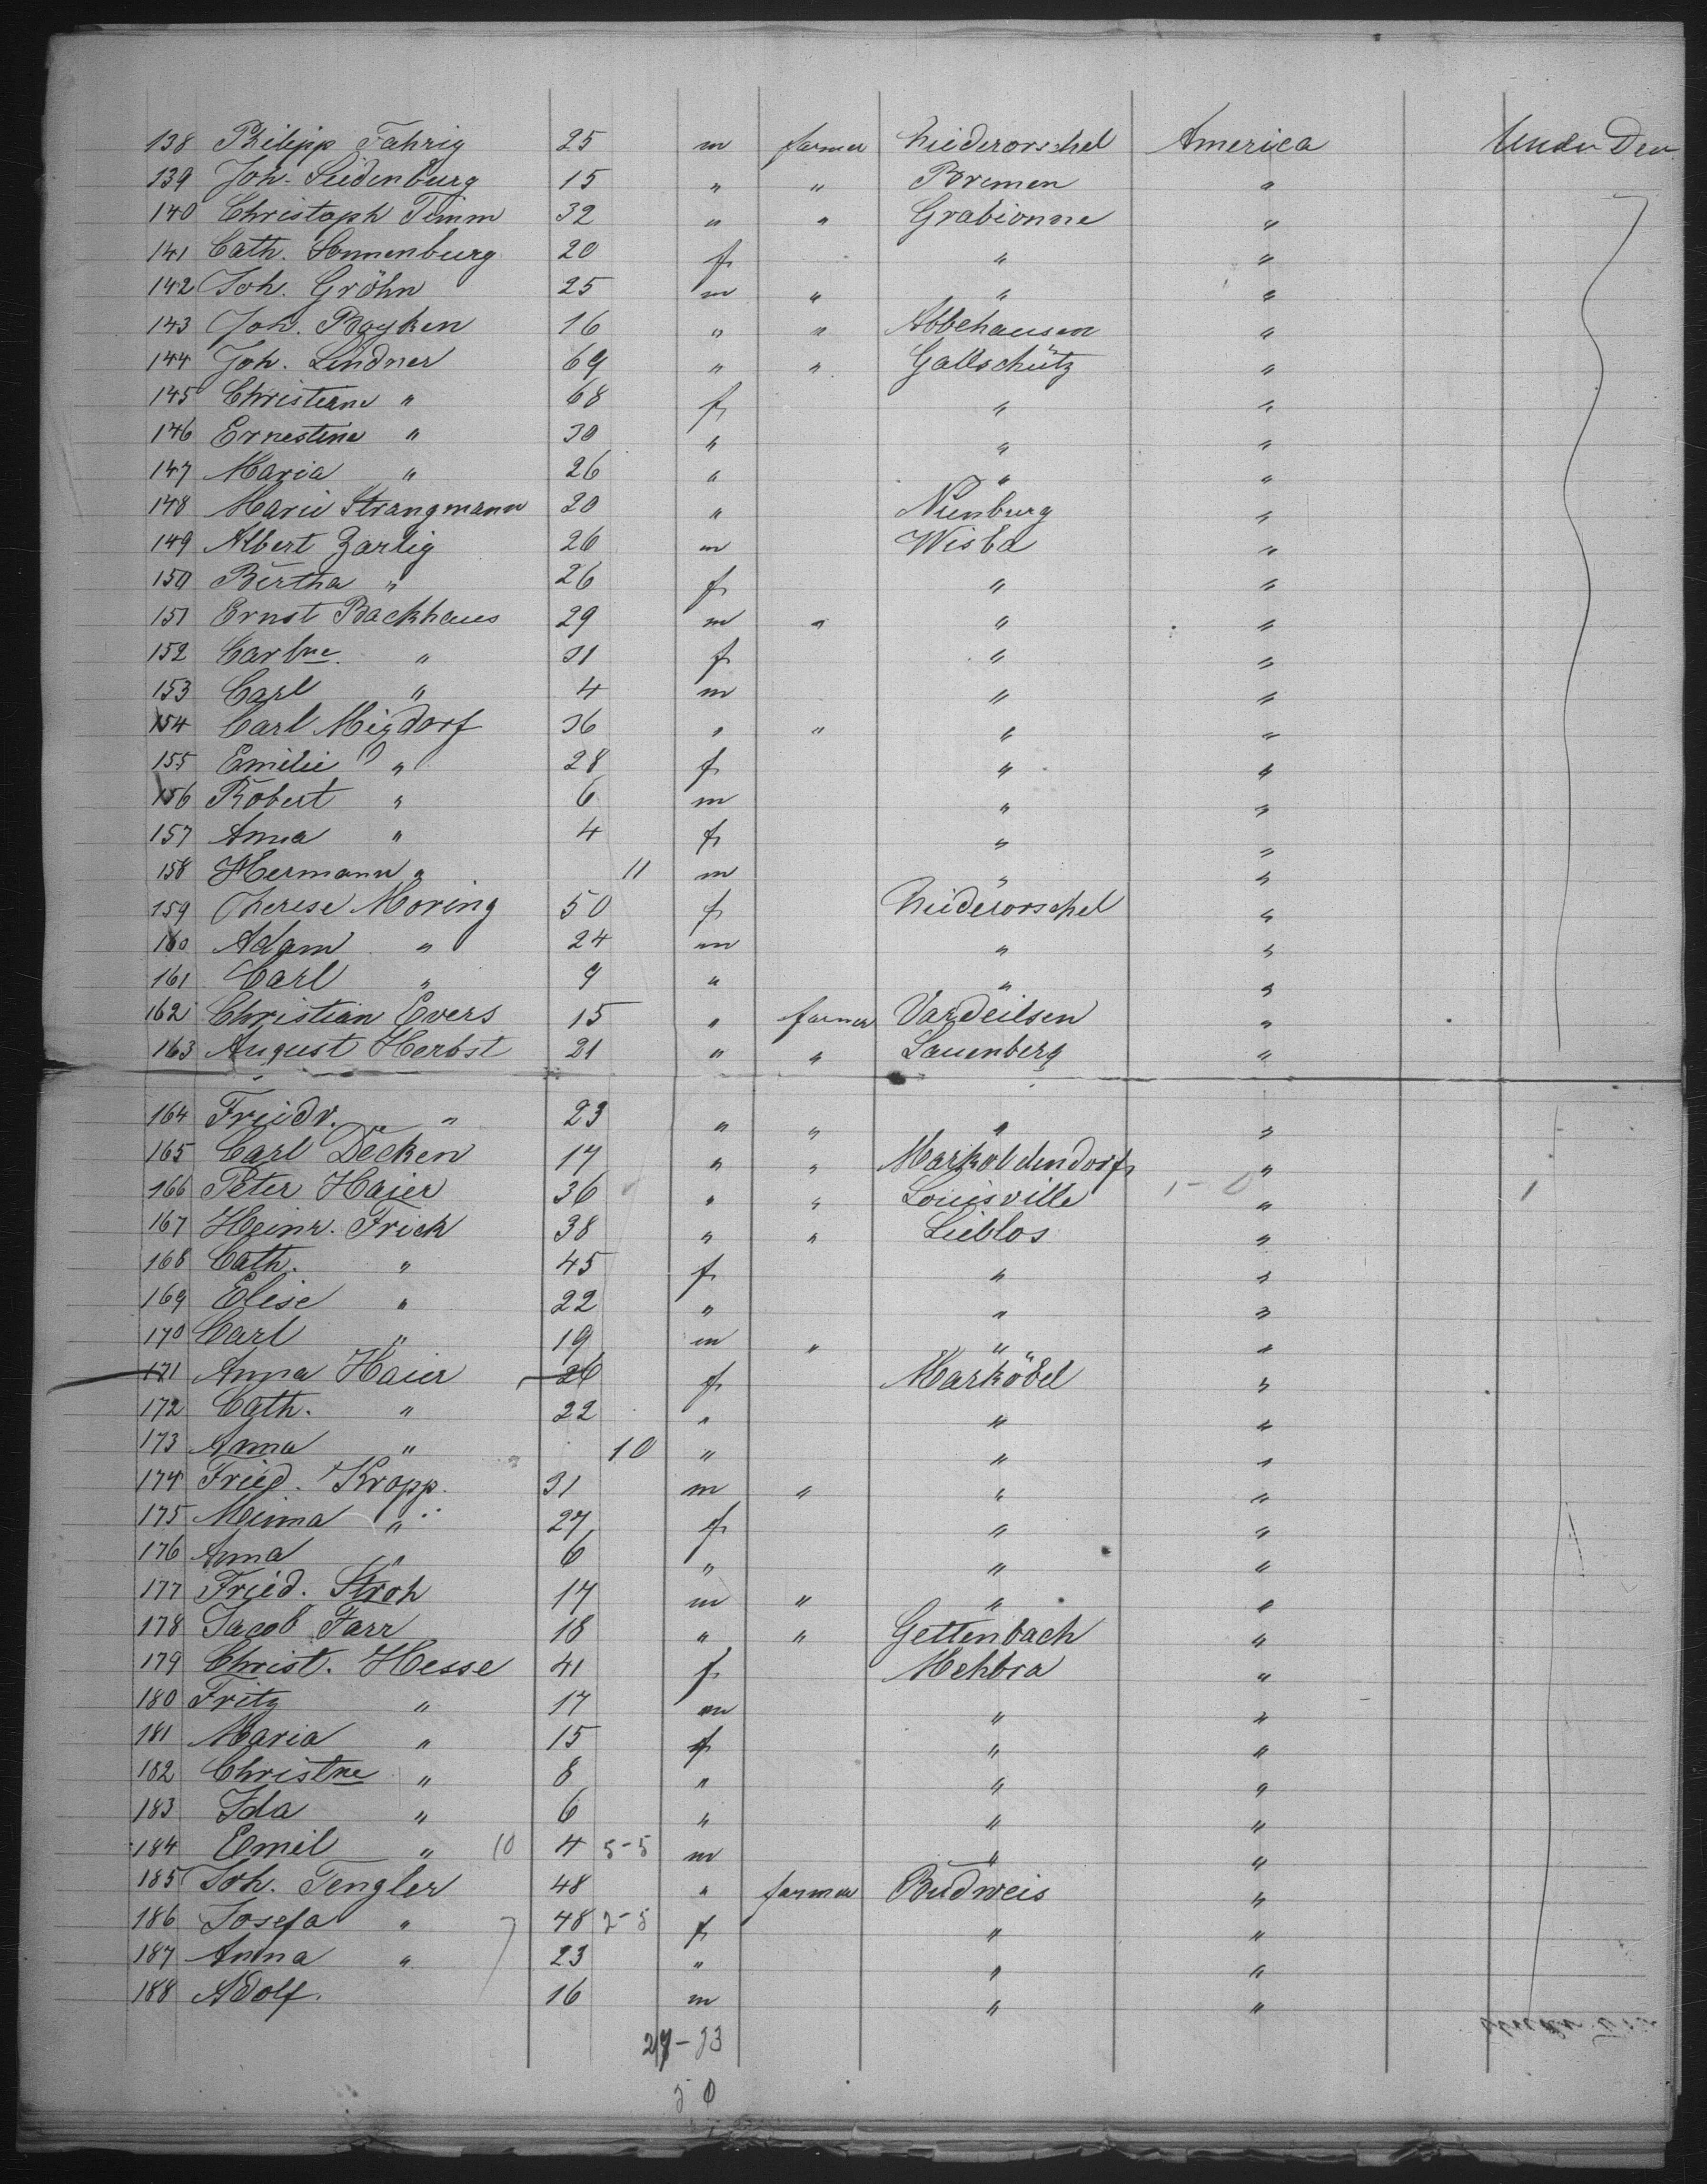 138 Philipp Fahrig 25 m farmer Niederorschel America Under Dev
139 Joh. Südenburg 15 " " Bremen "
140 Christoph Timm 32 " " Grabionne "
141 Cath. Sonnenburg 20 f " "
142 Joh. Gröhn 25 m " " "
143 Joh. Boyken 16 " " Abbehausen "
144 Joh. Lindner 69 " " Gallschütz "
145 Christiane " 68 f " "
146 Ernestine " 30 " " "
147 Maria " 26 " " "
148 Marie Strangmann 20 " Nienburg "
149 Albert Zarlig 26 m Wisba "
150 Bertha " 26 f " "
151 Ernst Backhaus 29 m " " "
152 Carlne " 31 f " "
153 Carl " 4 m " "
154 Carl Migdorf 36 " " " "
155 Emilie " 28 f " "
156 Robert " 6 m " "
157 Anna " 4 f " "
158 Hermann " 11 m " "
159 Therese Moring 50 f Niederorschel "
160 Adam " 24 m " "
161 Carl " 9 " " "
162 Christian Evers 15 " farmer Vardeilsen "
163 August Herbst 21 " " Lauenberg "
164 Friedr. " 23 " " " "
165 Carl Decken 17 " " Markoldendorf "
166 Peter Haier 36 " " Louisville 1-0 " 1
167 Heinr. Frick 38 " " Lieblos "
168 Cath. " 45 f " "
169 Elise " 22 " " "
170 Carl " 19 m " " "
171 Anna Haier 26 f Marköbel "
172 Cath. " 22 " " "
173 Anna " 10 " " "
174 Fried. Kropp. 31 m " " "
175 Meinna " 27 f " "
176 Anna " 6 " " "
177 Fried. Stroh 17 m " " "
178 Jacob Farr 18 " " Gettenbach "
179 Christ. Hesse 41 f Mehbra "
180 Fritz " 17 m " "
181 Maria " 15 f " "
182 Christne " 8 " " "
183 Ida " 6 " " "
184 Emil " 10 4 5-5 m " "
185 Joh. Tengler 48 " farmer Budweis "
186 Josefa " 48 2-5 f " "
187 Anna " 23 " " "
188 Adolf. 16 m " "
27-23
50